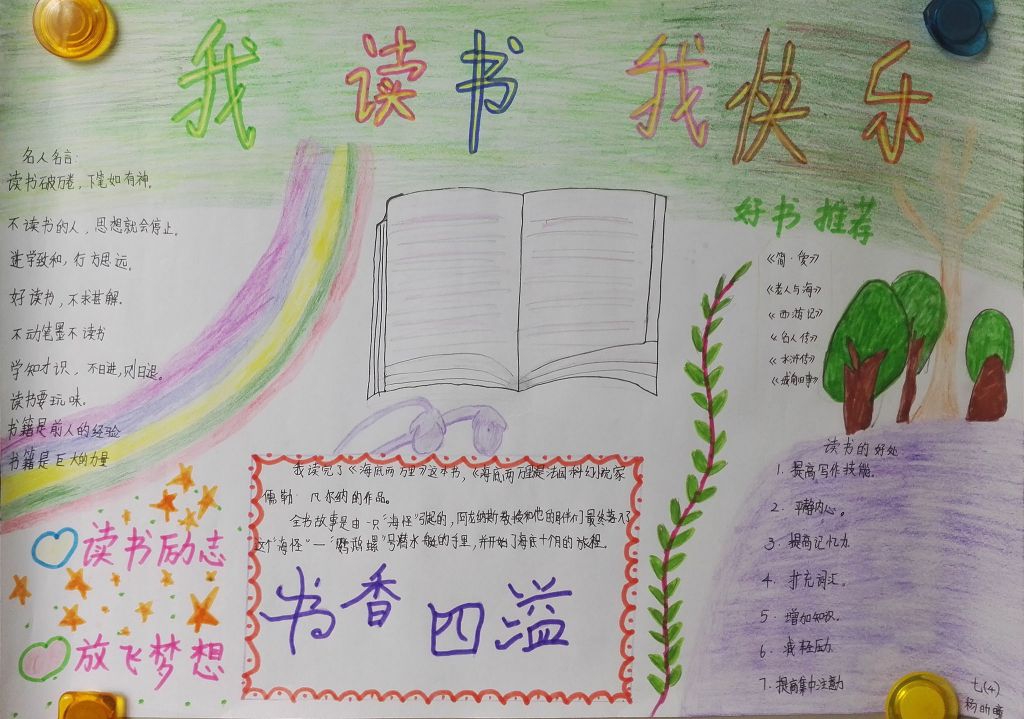 我 读书 我快乐
名人名言:
读书破万卷，下笔如有神。
不读书的人，思想就会停止。
进学致和，行方思远。
好读书，不求甚解。
不动笔墨不读书
学知才识，不日进，则日退。
读书要玩味。
书籍是前人的经验
书籍是巨大的力量
读书励志
放飞梦想
我读完了《海底两万里》这本书，《海底两万里是法国科幻院家
儒勒·凡尔纳的作品。
全书故事是由一只"海怪"引起的，阿龙纳斯教授和他的伙伴们最终落入了
这个"海怪"—"鹦鹉螺"号潜水艇的手里，并开始了海底十个月的旅程。
书香四溢
好书推荐
《简·爱》
《老人与海》
《西游记》
《名人传》
《水浒传》
《城南旧事》
读书的好处
1. 提高写作技能。
2. 平静内心。
3. 提高记忆力
4. 扩充词汇。
5. 增加知识。
6. 减轻压力.
7. 提高集中注意力
七(4)
杨